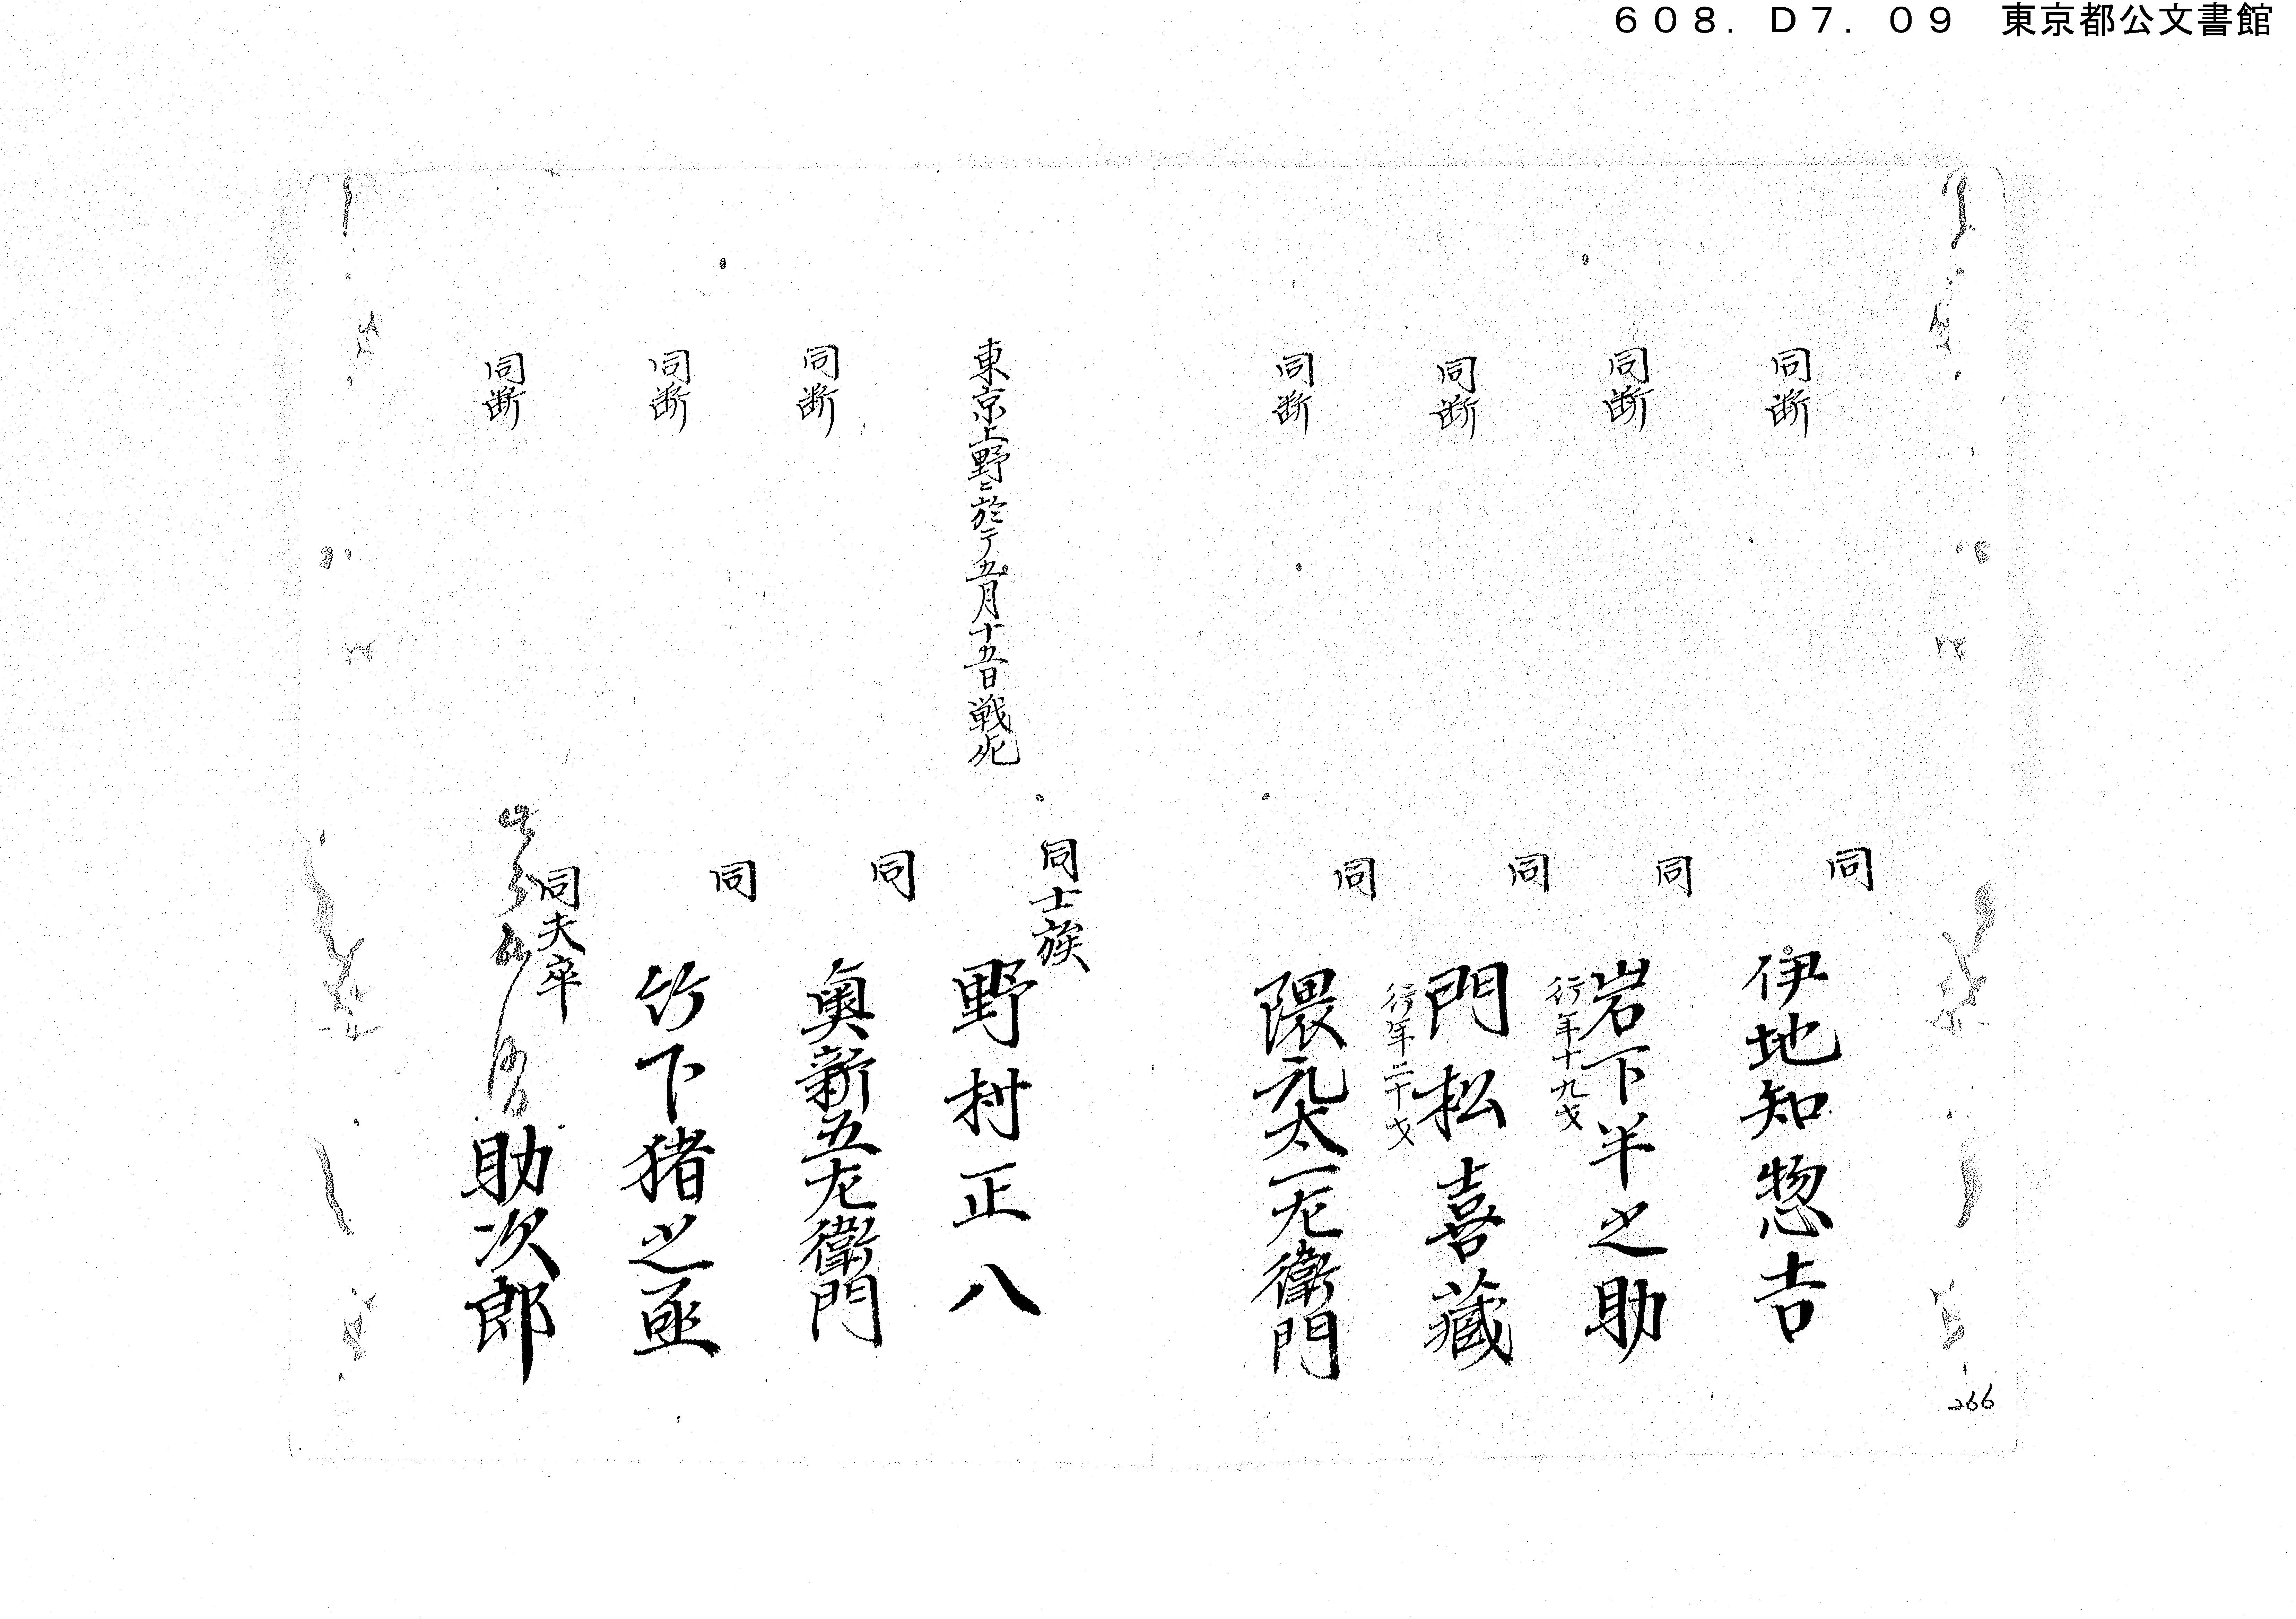 608. D7. 09 東京都公文書館
同断
同
伊地知惣吉
同断
同
岩下半之助
行年十九才
同断
同
門松喜藏
行年二十才
同断
同
隈元太一左衛門
東京上野ニ於テ五月十五日戦死
同士族
野村正八
同断
同
奥新五左衛門
同断
同
竹下猪之丞
同断
同夫卒
助次郎
266